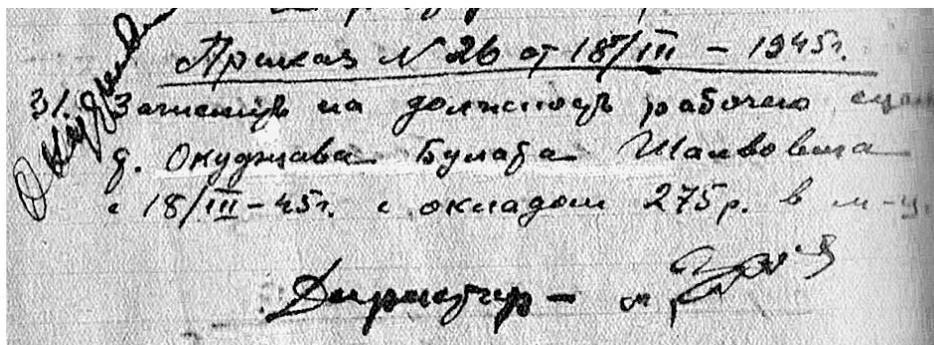 Приказ N 26 от 18/III – 1945г.
31. Зачислить на должность рабочего сцен
т. Окуджава Булата Шалвовича
с 18/III – 45г. с окладом 275р. в м-ц.
Директор –
Окуджава